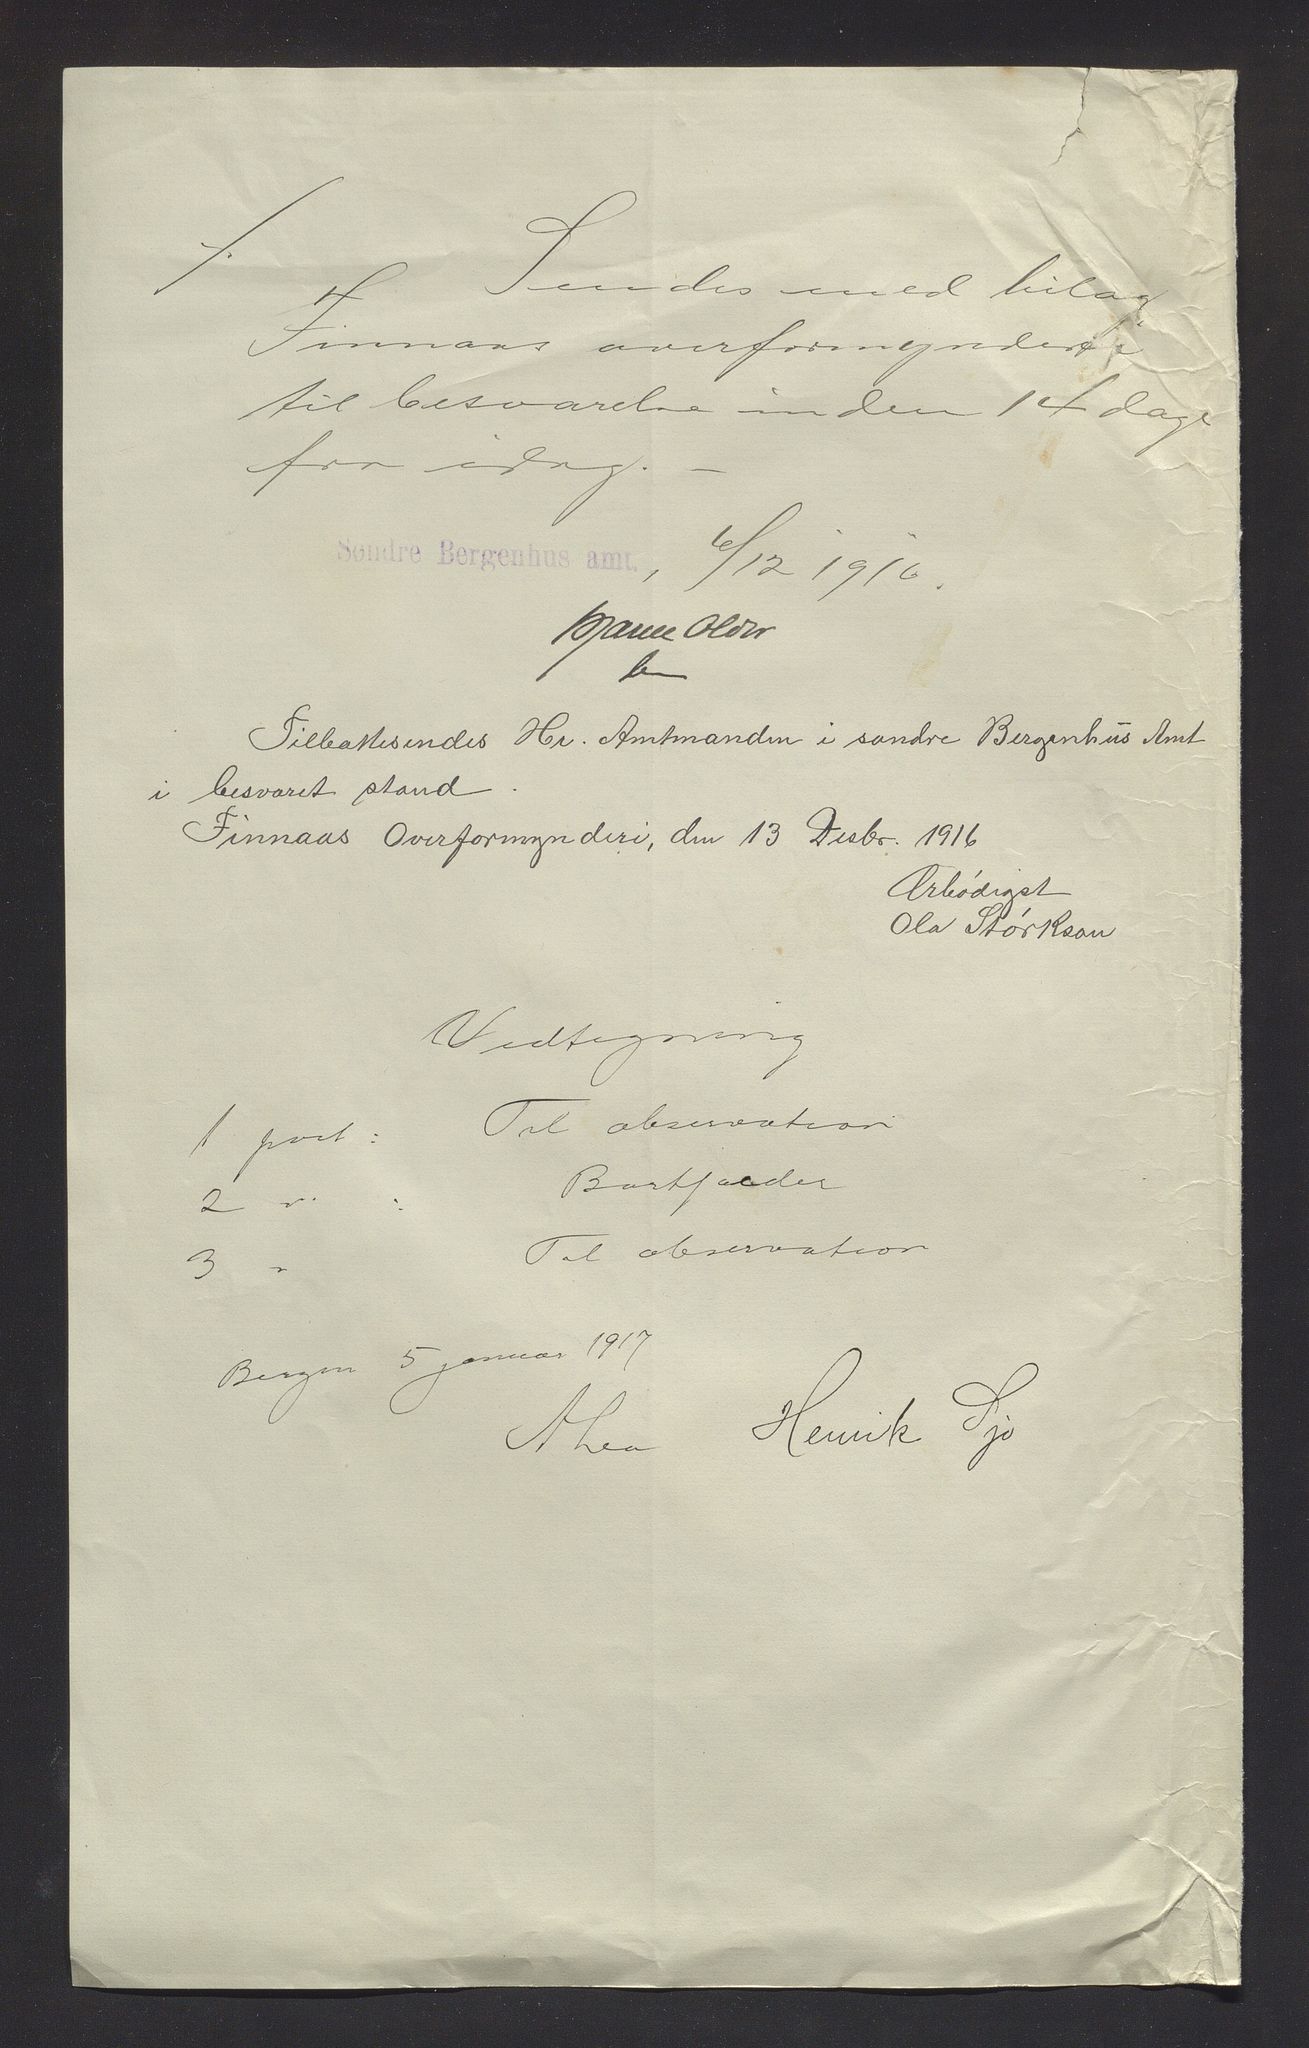 Sendes med bilag
Finnaas overformynderi
til besvarelse inden 14 dage
fra idag. –
Søndre Bergenhus amt., 6/12 1916.
Tilbakesendes Hr. Amtmanden i søndre Bergenhus Amt
i besvaret stand.
Finnaas Overformynderi, den 13 Desbr. 1916
Ærbødigst
Ola Størkson
Vedtegning
1 post: Til observation
2 " : Bortfalder
3 " Til observation
Bergen 5 januar 1917
Henrik